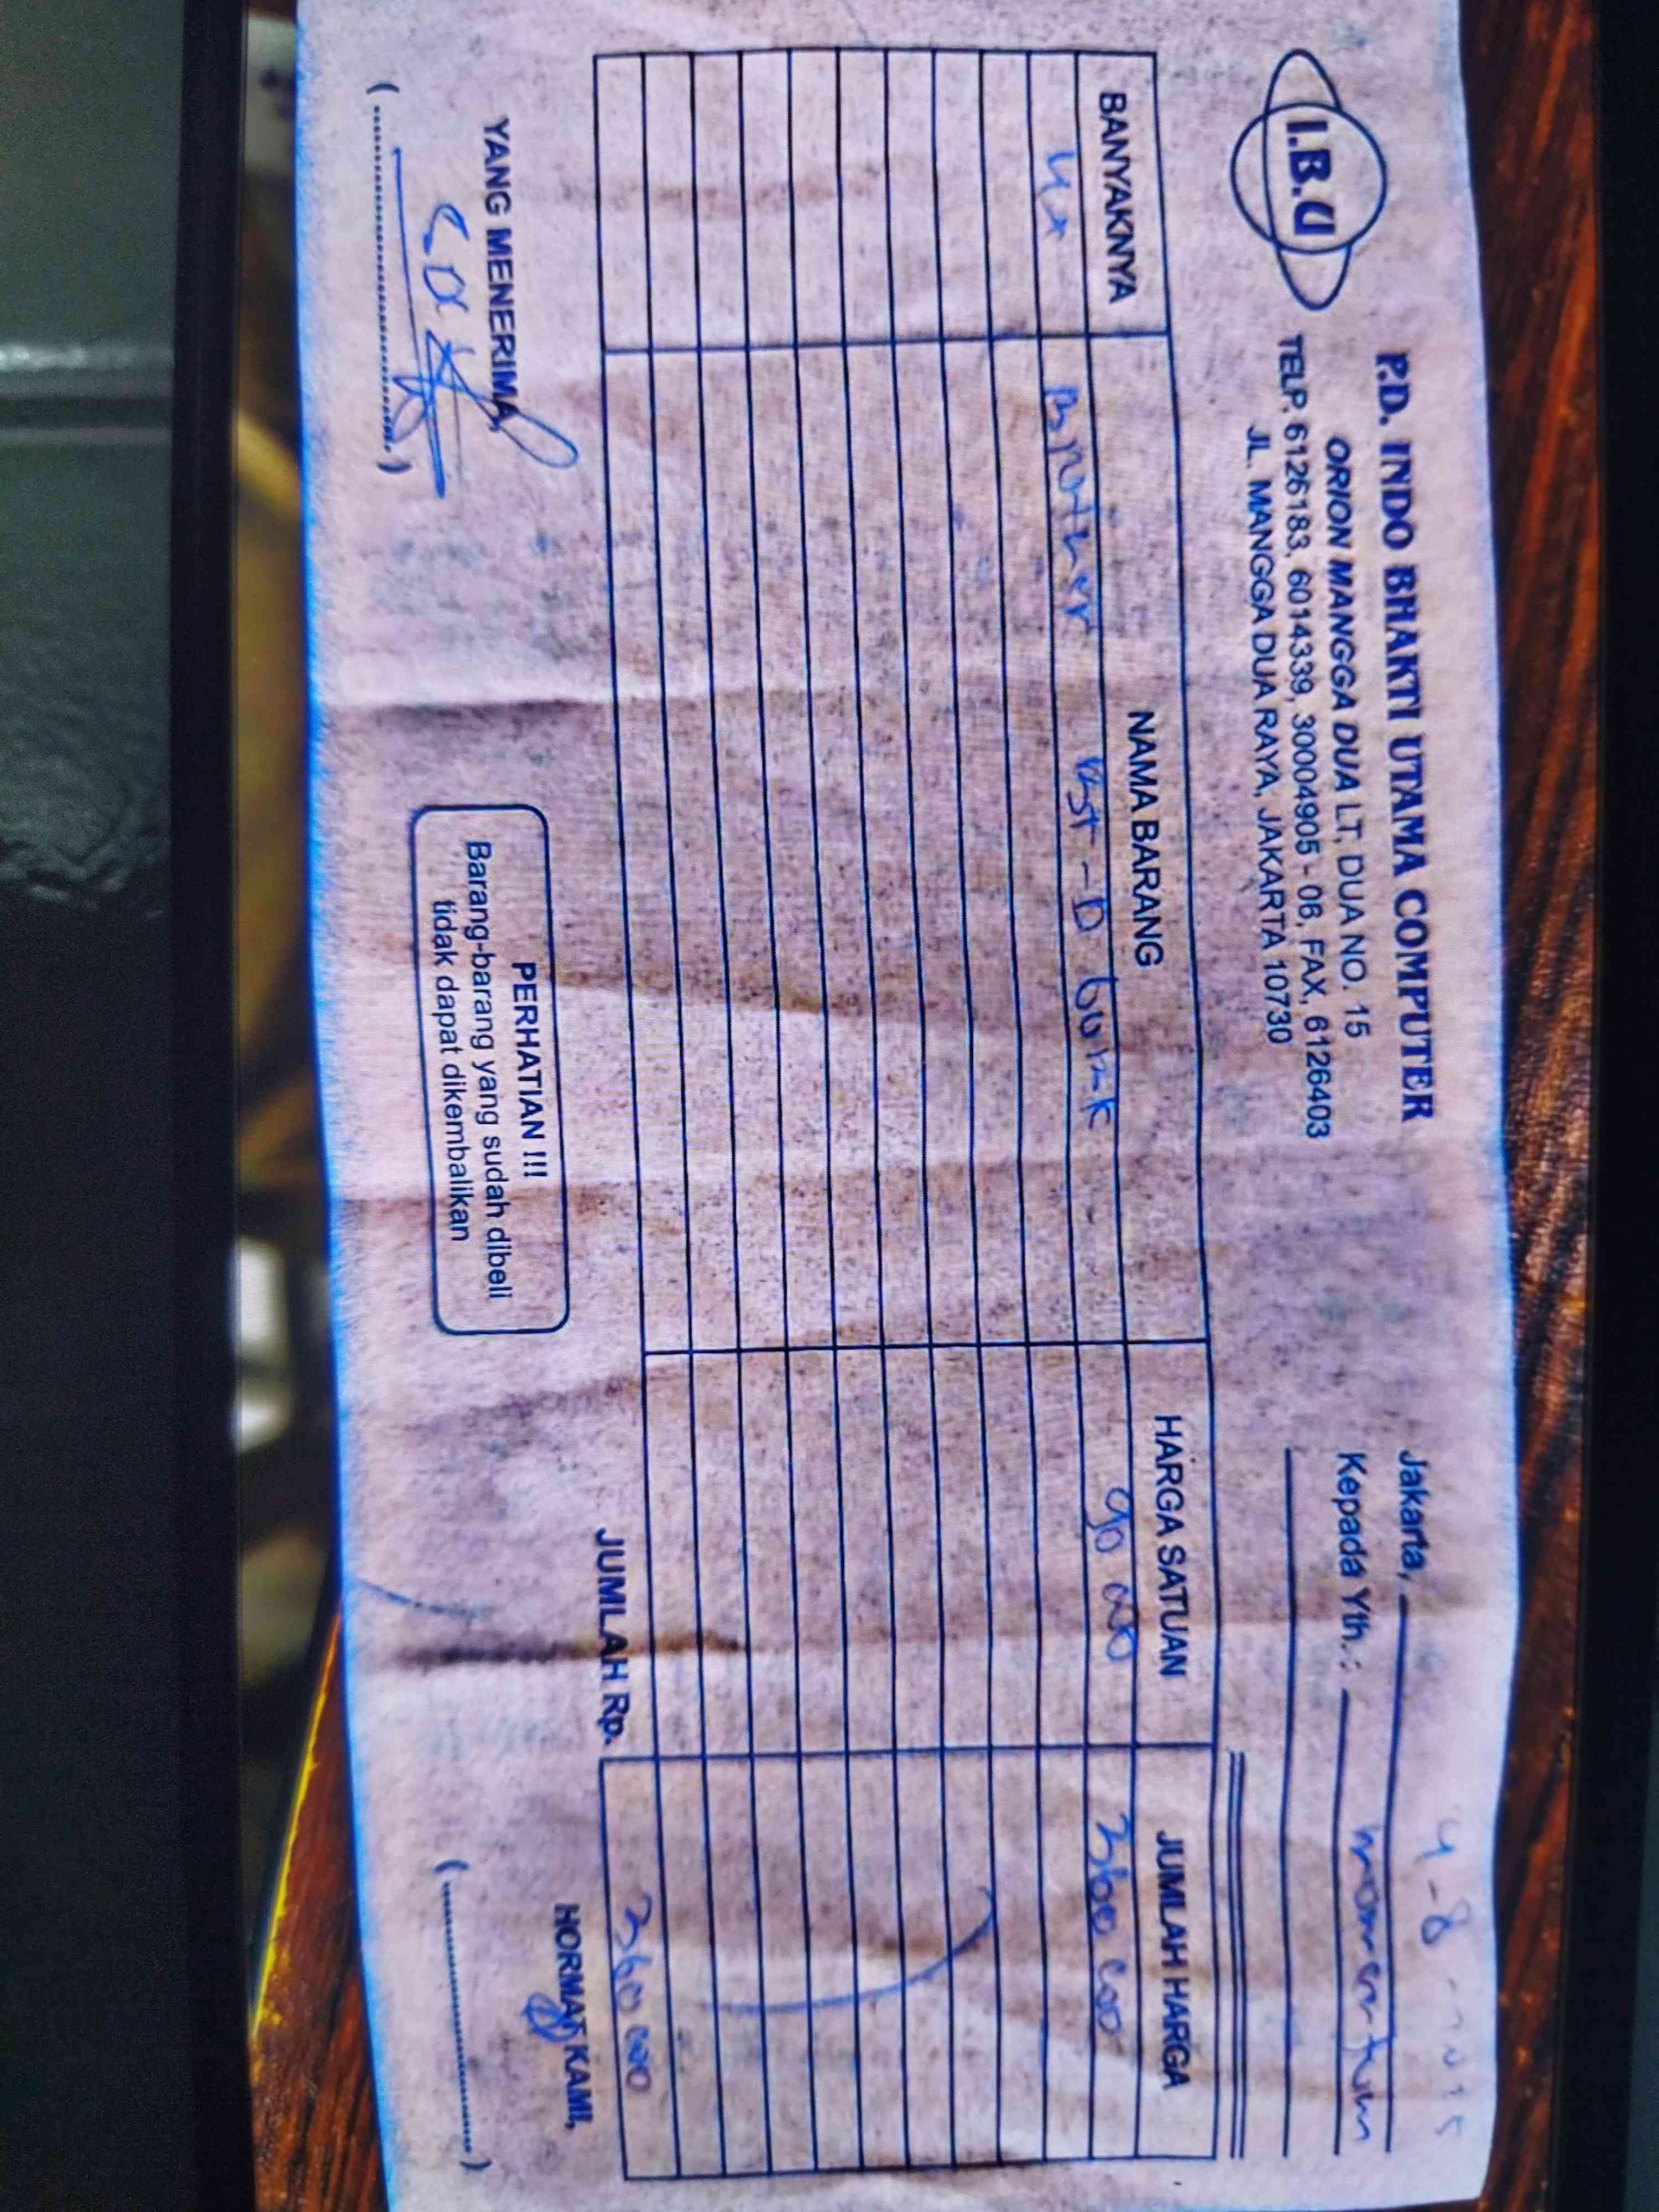 I.B.U
P.D. INDO BHAKTI UTAMA COMPUTER
ORION MANGGA DUA LT, DUA NO. 15
TELP. 6126183, 6014339, 30004905 - 06, FAX, 6126403
JL. MANGGA DUA RAYA, JAKARTA 10730
Jakarta, 4-8-2025
Kepada Yth.: momentum
BANYAKNYA NAMA BARANG HARGA SATUAN JUMLAH HARGA
4x Brother - D 90 000 360 000
JUMLAH Rp. 360 000
YANG MENERIMA,
PERHATIAN !!!
Barang-barang yang sudah dibeli
tidak dapat dikembalikan
HORMAT KAMI,
(....................)
(....................)